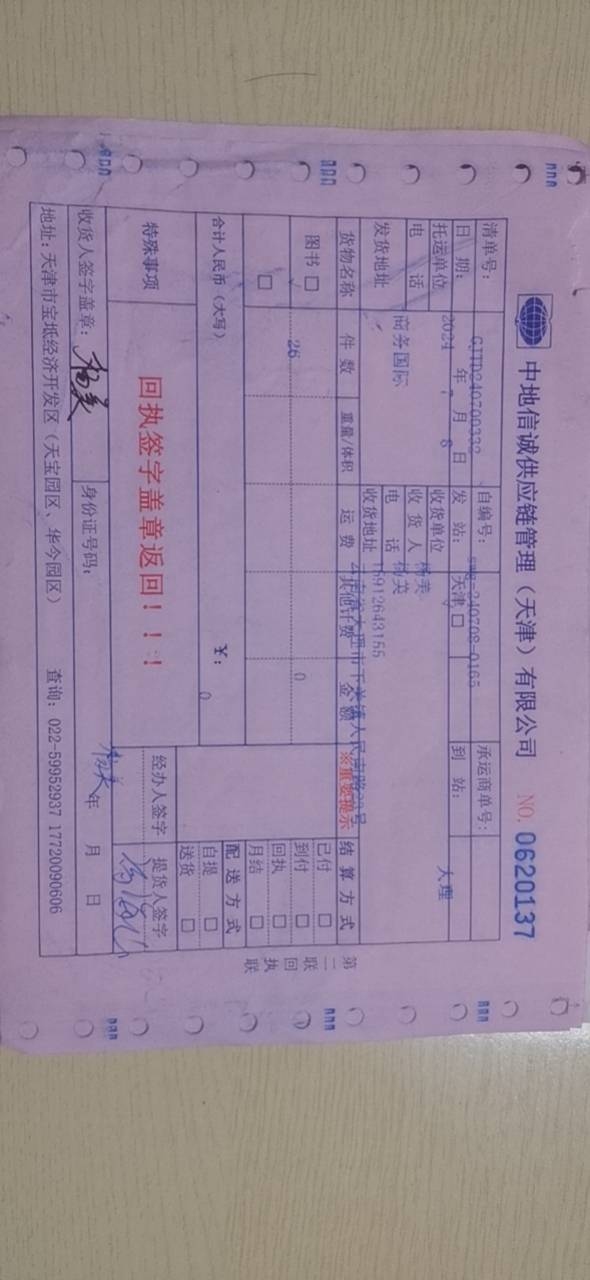 中地信诚供应链管理（天津）有限公司 NO. 0620137
清单号: GJTD240700332 自编号: 240708-0165 承运商单号:
日 期: 2024 年 7 月 8 日 发 站: 天津□ 到 站: 大理
托运单位 收货单位
电 话 收 货 人 杨美
商务国际 电 话 杨美
发货地址 收货地址 15912643155
云南省大理市下关镇人民南路 号
货物名称 件 数 重量/体积 运 费 其他计费 金 额 ※重要提示 结 算 方 式
图书□ 26 0 已付 □
到付 □
□ 回执 □
月结 □
合计人民币（大写） ¥: 0 配 送 方 式
自提 □
送货 □
特殊事项 回执签字盖章返回！！！ 经办人签字 提货人签字
收货人签字盖章: 杨美 身份证号码: 年 月 日
地址: 天津市宝坻经济开发区（天宝园区、华今园区） 查询: 022-59952937 17720090606
第二联 回执联